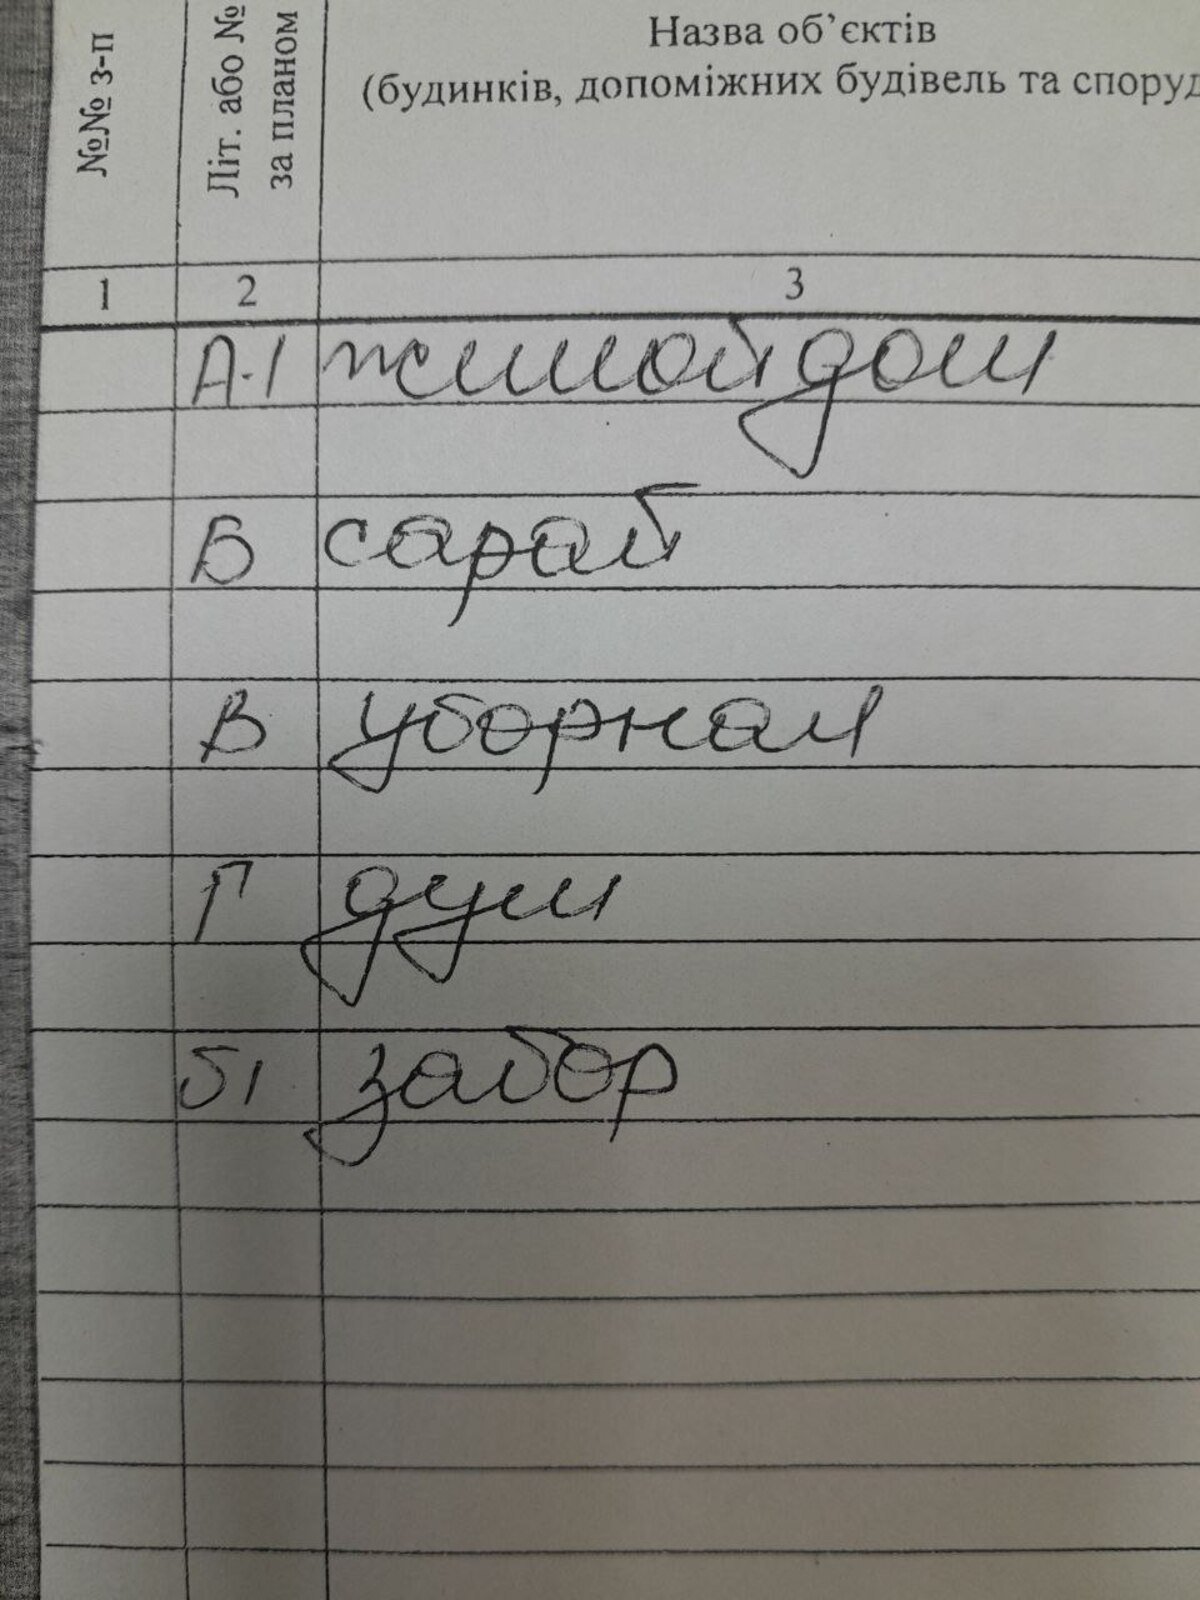 №№ з-п
Літ. або №
за планом
Назва об’єктів
(будинків, допоміжних будівель та споруд
1 2 3
А-1 жилой дом
Б сарай
В уборная
Г душ
б1 забор